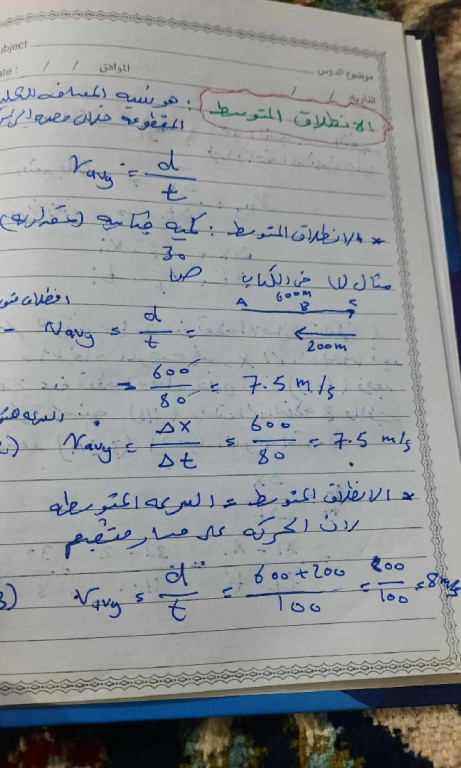 ubject
موضوع الدرس
ate : / / الموافق
التاريخ / /
الانطلاق المتوسط : هو نسبة المسافة الكلية
المقطوعة خلال
Vavg = d/t
* الانطلاق المتوسط : كمية قياسية (مقدارية)
مثال (1) في الكتاب ص 30
A 600m B C
Vavg = d/t =
200m
= 600/80 = 7.5 m/s
Vavg = Δx/Δt = 600/80 = 7.5 m/s
* الانطلاق المتوسط = السرعة المتوسطة
لان الحركة على مسار مستقيم
3) Vavg = d/t = 600+200/100 = 800/100 = 8 m/s